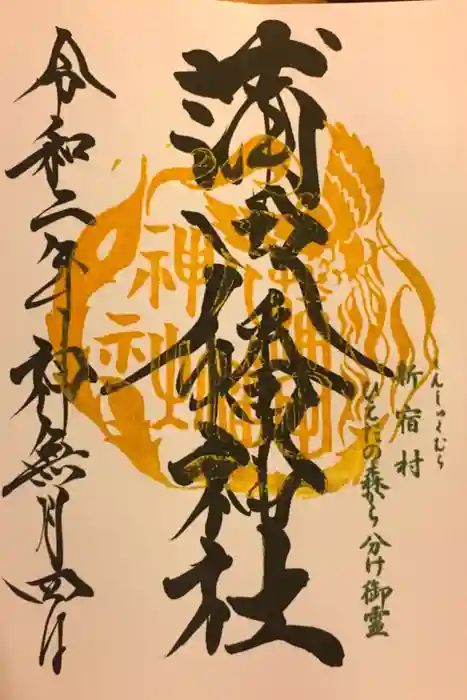 しんしゅくむら
新宿村
ひえだの森から分け御霊
蒲田八幡神社
令和二年神無月四日
神社